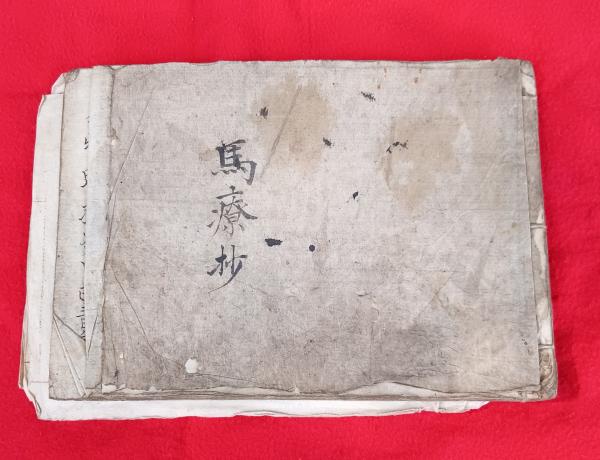 馬療抄